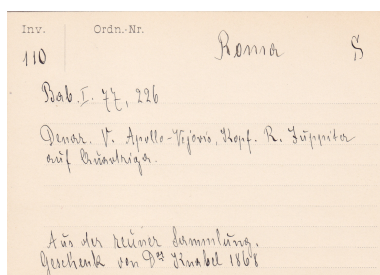 Inv. Ordn.-Nr.
110 Roma S
Bab. I. 77, 226
Denar. V. Apollo-Vejovis, Kopf. R. Juppiter
auf Quadriga.
Aus der reuner Sammlung.
Geschenk von Dr Knabel 1868